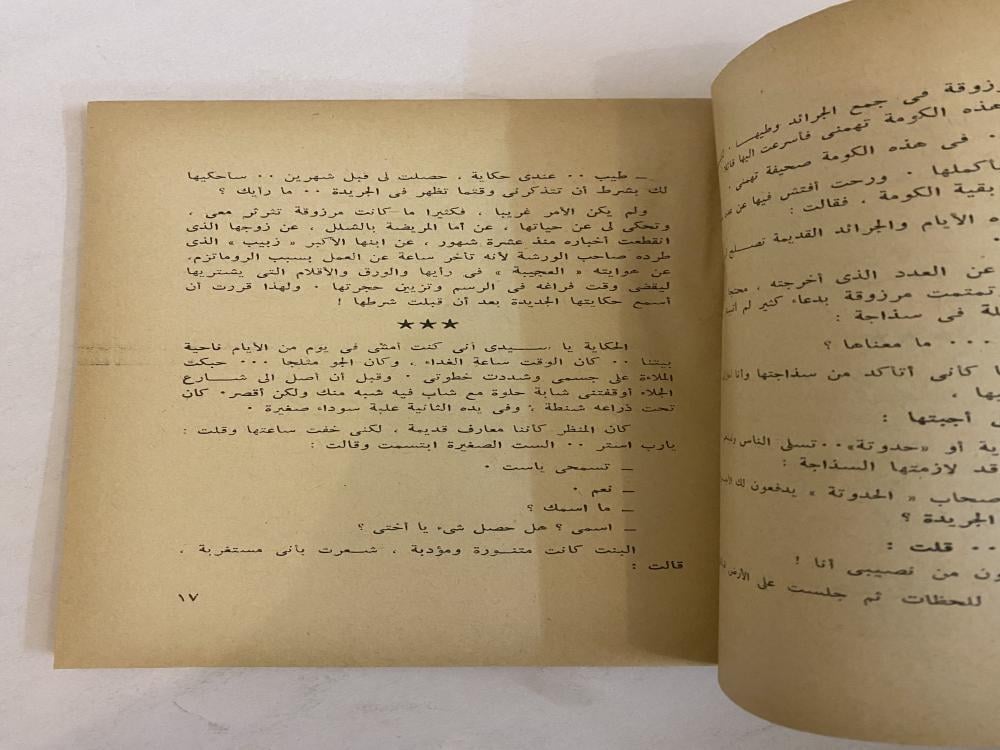 رزوقة فى جمع الجرائد وطيهــا
هذه الكومة تهمنى فأسرعت اليها
٠ فى هذه الكومة صحيفة تهمنى ٠
بأكملها ٠ ورحت أفتش فيها عن
بقية الكومة ، فقالت :
ه الأيام والجرائد القديمة تصــلح
عن العدد الذى أخرجته ،
تمتمت مرزوقة بدعاء كثير لم
لة فى سذاجة :
٠٠٠ ما معناها ؟
كأنى أتأكد من سذاجتها وأنا
يها ،
أجبتها :
ية أو «حدوتة»٠٠تسلى الناس
قد لازمتها السذاجة :
صحاب « الحدوتة » يدفعون لك
الجريدة ؟
٠٠ قلت :
ون من نصيبى أنا !
للحظات ثم جلست على الأرض
ــ طيب ٠٠ عندى حكاية ، حصلت لى قبل شهرين ٠٠ سأحكيها
لك بشرط أن تتذكرنى وقتما تظهر فى الجريدة ٠٠ ما رأيك ؟
ولم يكن الأمر غريبا ، فكثيرا ما كانت مرزوقة تثرثر معى ،
وتحكى لى عن حياتها ، عن أمها المريضة بالشلل ، عن زوجها الذى
انقطعت أخباره منذ عشرة شهور ، عن ابنها الأكبر « زبيب » الذى
طرده صاحب الورشة لأنه تأخر ساعة عن العمل بسبب الروماتزم٠
عن هوايته « العجيبة » فى رأيها والورق والأقلام التى يشتريها
ليقضى وقت فراغه فى الرسم وتزيين حجرتها ٠ ولهذا قررت أن
أسمع حكايتها الجديدة بعد أن قبلت شرطها !
★★★
الحكاية يا ســيدى أنى كنت أمشى فى يوم من الأيام ناحية
بيتنا ٠٠ كان الوقت ساعة الغداء ، وكان الجو مثلجا ٠٠٠ حبكت
الملاءة على جسمى وشددت خطوتى ٠ وقبل أن أصل الى شــــارع
الجلاء أوقفتنى شابة حلوة مع شاب فيه شبه منك ولكن أقصر٠ كان
تحت ذراعه شنطة ، وفى يده الثانية علبة سوداء صغيرة ٠
كان المنظر كأننا معارف قديمة ، لكنى خفت ساعتها وقلت :
يارب استر ٠٠ الست الصغيرة ابتسمت وقالت :
ــ تسمحى ياست ٠
ــ نعم ٠
ــ ما اسمك ؟
ــ اسمى ؟ هل حصل شىء يا أختى ؟
البنت كانت متنــورة ومؤدبة ، شــعرت بأنى مستغربة ،
قالت :
١٧